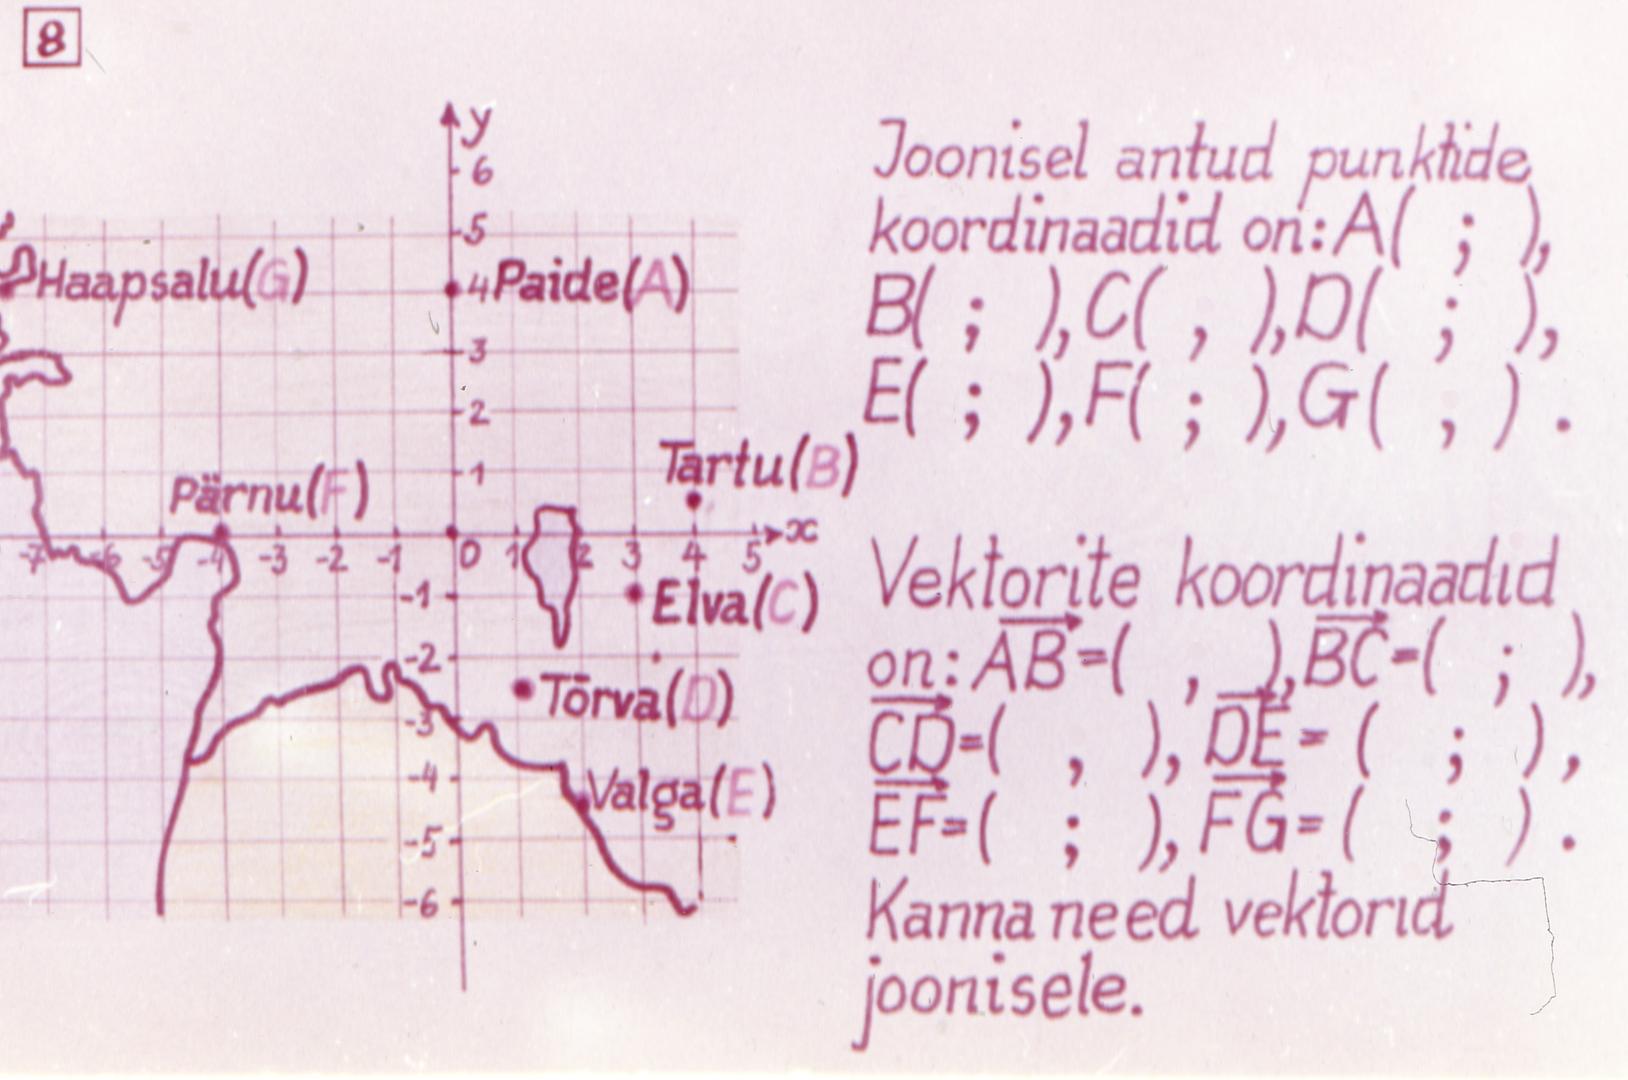 8
y
6
5
Haapsalu(G)
4 Paide(A)
3
2
Tartu(B)
1
Pärnu(F)
x
-7 -6 -5 -4 -3 -2 -1 0 1 2 3 4 5
-1 Elva(C)
-2
Tõrva(D)
-3
-4
Valga(E)
-5
-6
Joonisel antud punktide
koordinaadid on: A( ; ),
B( ; ), C( , ), D( ; ),
E( ; ), F( ; ), G( , ) .
Vektorite koordinaadid
on: AB=( , ), BC=( ; ),
CD=( , ), DE=( ; ),
EF=( ; ), FG=( ; ) .
Kanna need vektorid
joonisele.